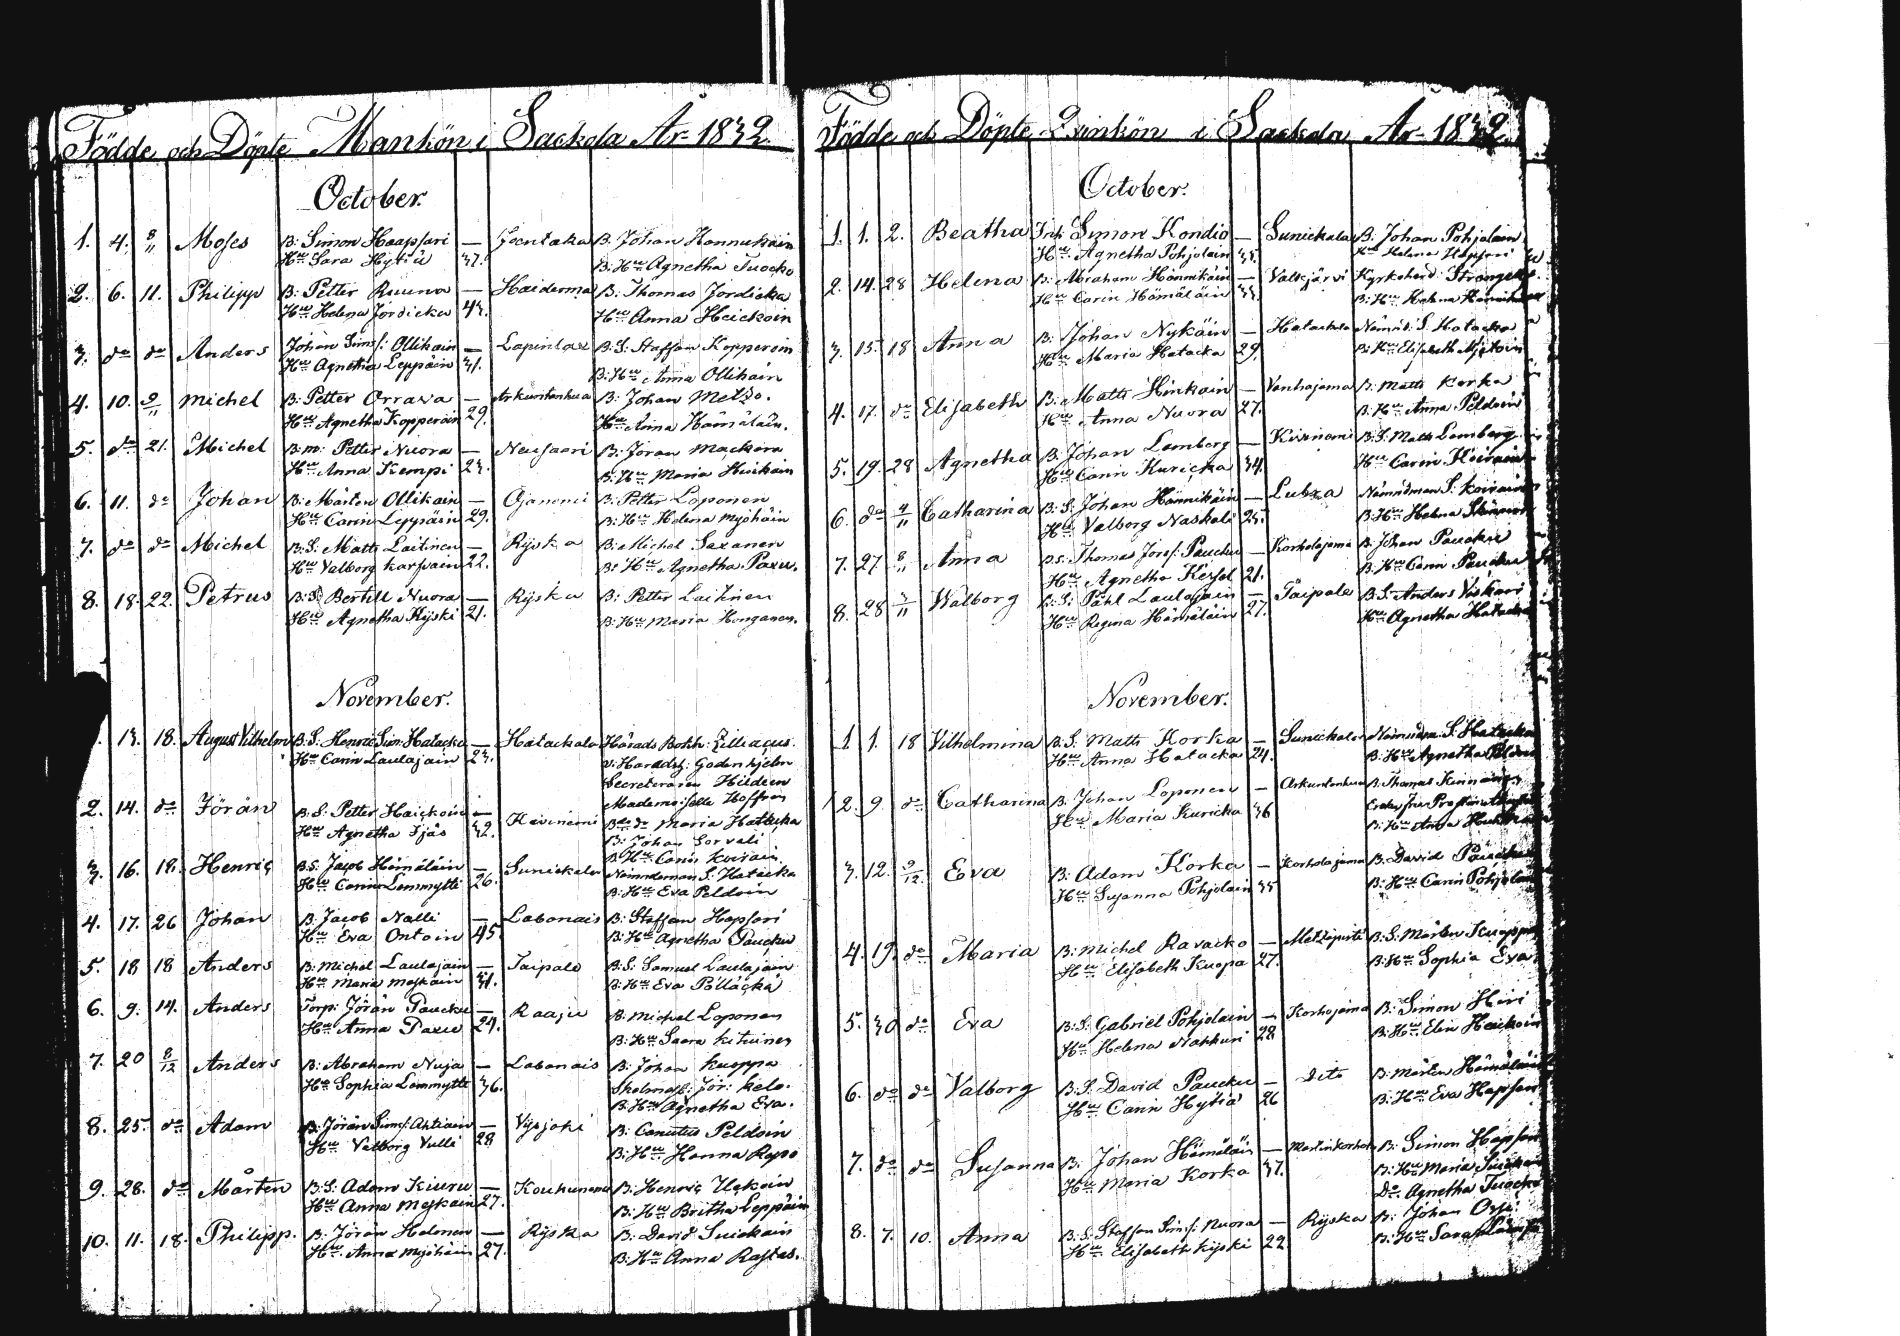 Födde och Döpte Mankön i Sackola År 1832.
October.
1. 4. 8/11 Moses B: Simon Haapsari — Joentaka B. Johan Hannukain
Hu Sara Hytiä 37. B: Hu Agnetha Tuocko
2. 6. 11. Philipp B: Petter Ruuna — Haiderma B: Thomas Jordicka
Hu Helena Jordicka 43. Hu Anna Heickoin
3. do do Anders Johan Sims: Ollikain — Lapinlax B: S: Staffan Kopperoin
Hu Agnetha Leppäin 31. B: Hu Anna Ollikain
4. 10. 9/11 Michel B: Petter Orrava — Arkuntanhua B: Johan Metzo.
Hu Agnetha Kopperoin 29. Hu Anna Hämäläin.
5. do 21. Michel B: m: Petter Nuora — Neusaari B: Jöran Mackara
Hu Anna Kempi 23. B: Hu Maria Huikain
6. 11. do Johan B: Mårten Ollikain — Ojanemi B: Petter Loponen
Hu Carin Leppäin 29. B: Hu Helena Myöhäin
7. do do Michel B: S: Matts Laitinen — Rijska B: Michel Saxanen
Hu Valborg Karfvain 22. B: Hu Agnetha Paxu.
8. 18. 22. Petrus B: S: Bertill Nuora — Rijska B: Petter Laitinen
Hu Agnetha Kijski 21. B: Hu Maria Honganen.
November.
13. 18. August Vilhelm B: S: Henric Sim: Hatacka — Hatackala Härads Bokh: Zilliacus.
Hu Carin Laulajain 23. v: Haradsh: Godenhjelm
Secreteraren Hildeen
Mademoiselle Hoffren
2. 14. do Jöran B: S: Petter Haickoin — Kivinemi B: do Maria Hatacka
Hu Agnetha Ijäs 32. B: Johan Sorvali
B: Hu Carin Koirain
3. 16. 18. Henric B: S: Jacob Hämäläin — Sunickala Nämndeman S. Hatacka
Hu Carin Lemmytti 26. B: Hu Eva Peldoin
4. 17. 26 Johan B: Jacob Nalli — Labonais B: Staffan Hapsari
Hu Eva Ontoin 45. B: Hu Agnetha Paucku
5. 18 18 Anders B: Michel Laulajain — Taipale B: S: Samuel Laulajain
Hu Maria Moskain 31. B: Hu Eva Pölläcka
6. 9. 14. Anders Torp: Jöran Paucku — Raaju B: Michel Loponen
Hu Anna Paxu 24. B: Hu Saara Kituinen
7. 20 8/12 Anders B: Abraham Nuja — Labonais B: Johan Kuoppa
Hu Sophia Lemmytti 36. Skolmäst: Jör: Kelo.
B: Hu Agnetha Eva.
8. 25. do Adam B: Jöran Sims: Ahtiain — Vijsjoki B: Canutus Peldoin
Hu Valborg Vulli 28 B: Hu Hanna Repo
9. 28. do Mårten B: S: Adam Kiuru — Koukunemi B: Henric Uckoin
Hu Anna Moskain 27. B: Hu Britha Leppäin
10. 11. 18. Philipp. B: Jöran Halonen — Rijska B: David Suickain
Hu Anna Myöhäin 27. B: Hu Anna Rastas.
Födde och Döpte Qvinkön i Sackola År 1832.
October.
1. 1. 2. Beatha Simon Kondio — Sunickala B: Johan Pohjolain
Hu Agnetha Pohjolain 35. Hu Helena Hapsari
2. 14. 28 Helena B: Abraham Hännikäin — Valkjärvi Kyrkoherd: Strängell.
Hu Carin Hämäläin 33. B: Hu Helena
3. 15. 18 Anna B: Johan Nykäin — Hatackala Nämnd: S. Hatacka
Hu Maria Hatacka 29. B: Hu Elisabeth
4. 17. do Elisabeth B: Matts Hinkain — Vanhajama B: Matts Korka
Hu Anna Nuora 27. B: Hu Anna Peldoin
5. 19. 28 Agnetha B: Johan Lemberg — Kivinemi B: S: Matts Lemberg
Hu Carin Kuricka 34. Hu Carin Koirain
6. do 4/11 Catharina B: S: Johan Hännikäin — Nämndman S. Koirain
Hu Valborg Naskali 25. B: Hu Helena
7. 27 8/11 Anna B: S: Thomas Josef: Paucku — Korholajama B: Johan Paucku
Hu Agnetha Kessel 21. B: Hu Carin Paucku
8. 28 3/11 Walborg B: S: Påhl Laulajain — Taipale B: S: Anders Viskari
Hu Regina Hämäläin 27. Hu Agnetha Hatacka
November.
1. 1. 18 Vilhelmina B: S: Matts Korka — Sunickala Nämndm S: Hatacka
Hu Anna Hatacka 24. B: Hu Agnetha Peldoin
2. 9. do Catharina B: Johan Loponen — Arkuntanhua B: Thomas Kinnainen
Hu Maria Kuricka 36
B: Hu Anna
3. 12. 9/12 Eva B: Adam Korka — Korholajama B: David Paucku
Hu Susanna Pohjolain 35 B: Hu Carin Pohjolain
4. 19. do Maria B: Michel Ravacko — Metzäpirti B: S: Mårten Kuoppa
Hu Elisabeth Kuopa 27. B: Hu Sophia Eva
5. 30 do Eva B: S: Gabriel Pohjolain — Korhojama B: Simon Hiri
Hu Helena Nakkuri 28 B: Hu Elin Heickoin
6. do do Valborg B: S: David Paucku — Dito B: Mårten Hämäläin
Hu Carin Hytiä 26 B: Hu Eva Hapsari
7. do do Susanna B: Johan Hämäläin — Martinkorhola B: Simon Hapsari
Hu Maria Korka 37. B: Hu Maria Suickain
Do Agnetha Tuocko
8. 7. 10. Anna B: S: Staffan Sims: Nuora — Rijska B: Johan Orsi
Hu Elisabeth Kijski 22 B: Hu Sara